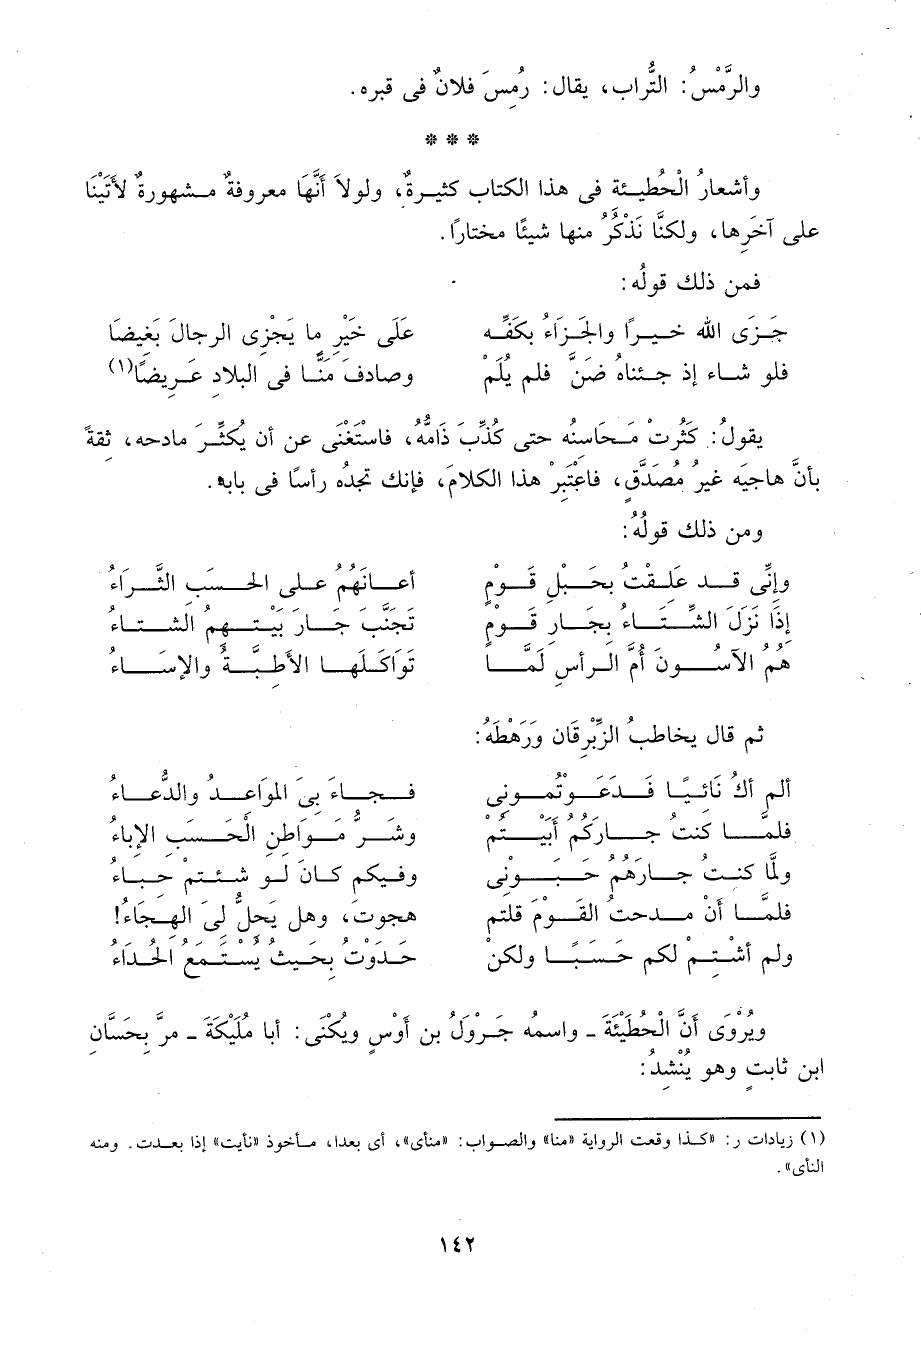 والرَّمْسُ: التُّراب، يقال: رُمِسَ فلانٌ فى قبره.
* * *
وأشعارُ الْحُطَيئة فى هذا الكتاب كثيرةٌ، ولولاَ أنَّهَا معروفةٌ مشهورةٌ لأَتَيْنَا
على آخَرِها، ولكنَّا نَذْكُرُ منها شيئًا مختارًا.
فمن ذلك قولُه:
جَزَى الله خيرًا والجَزَاءُ بكَفِّه عَلَى خَيْرِ ما يَجْزِى الرجالَ بَغيضَا
فلو شاء إذ جئناهُ ضَنَّ فلم يُلَمْ وصادفَ مَنًّا فى البلادِ عَرِيضًا(١)
يقولُ: كَثُرتْ مَحَاسِنُه حتى كُذِّبَ ذَامُّهُ، فاسْتَغْنَى عن أن يُكثِّرَ مادحه، ثقةً
بأنَّ هاجيَه غيرُ مُصَدَّقٍ، فاعْتَبِرْ هذا الكلامَ، فإنك تجدُه رأسًا فى بابه.
ومن ذلك قولُهُ:
وإنِّى قد عَلِقتُ بحَبْلِ قَومٍ أعانَهُم على الحَسَبِ الثَّراءُ
إذَا نَزَلَ الشِّتَاءُ بجَارِ قَومٍ تَجَنَّبَ جَارَ بَيْتِهِمُ الشتاءُ
هُمُ الآسُونَ أُمَّ الرأسِ لَمَّا تَوَاكَلَها الأَطِبَّةُ والإسَاءُ
ثم قال يخاطبُ الزِّبْرِقَانَ وَرَهْطَهُ:
ألم أكُ نَائيًا فَدعَوْتُمونى فجاءَ بىَ المَوَاعدُ والدُّعاءُ
فلمَّا كنتُ جارَكُم أَبَيْتُمْ وشَرُّ مَواطنِ الْحَسَبِ الإباءُ
ولمَّا كنتُ جارَهُمُ حَبَونى وفيكم كانَ لو شئتمْ حِباءُ
فلمَّا أنْ مدحتُ القَوْمَ قلتم هجوتَ، وهل يَحِلُّ لِىَ الهجَاءُ!
ولم أشْتِمْ لكم حَسَبًا ولكنْ حَدَوتُ بحيثُ يُسْتَمَعُ الحُداءُ
ويُرْوَى أنَّ الْحُطَيْئَةَ ـ واسمه جَرولُ بن أوْسٍ ويُكْنَى: أبا مُلَيْكَةَ ـ مرَّ بِحَسَّانَ
ابن ثابتٍ وهو يُنْشِدُ:
(١) زيادات ر: «كذا وقعت الرواية «منا» والصواب: «منأى»، أى بعدا، مأخوذ «نأيت» إذا بعدت. ومنه
النأى».
١٤٢